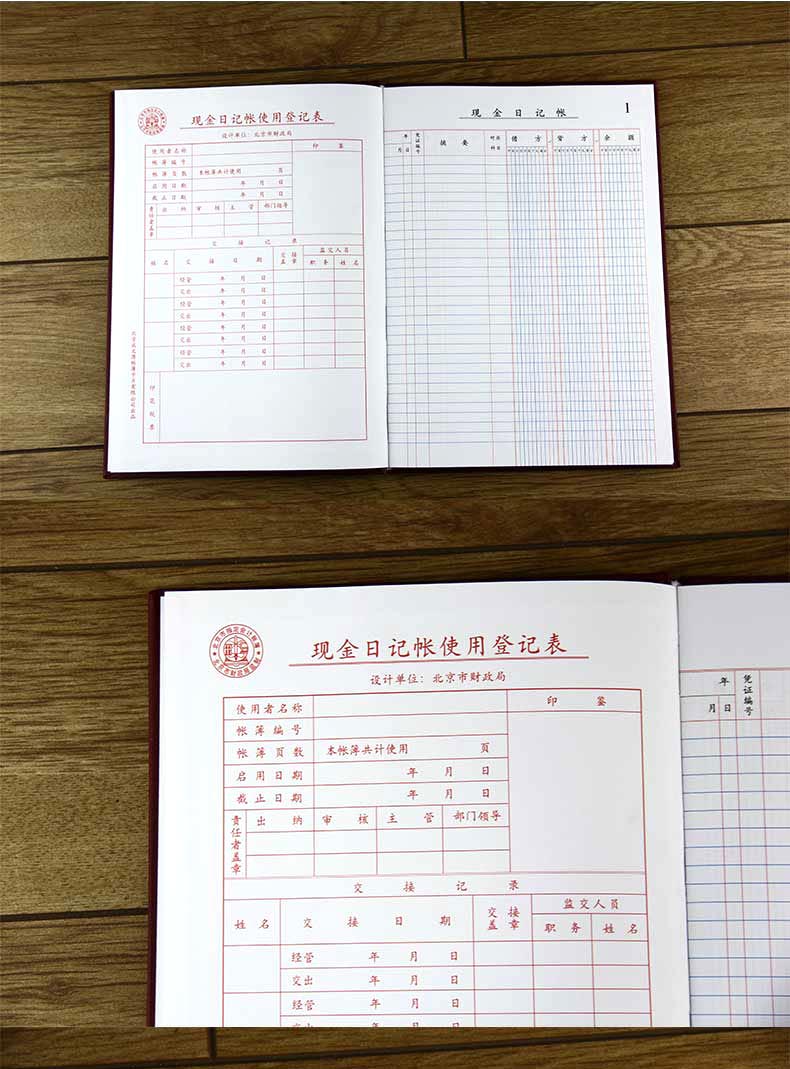 现金日记帐使用登记表
设计单位：北京市财政局
使用者名称
印 鉴
帐簿编号
帐簿页数 本帐簿共计使用 页
启用日期 年 月 日
截止日期 年 月 日
责任者盖章
出 纳 审 核 主 管 部门领导
交 接 记 录
姓 名 交 接 日 期 交接盖章 监交人员
职 务 姓 名
经管 年 月 日
交出 年 月 日
经管 年 月 日
交出 年 月 日
经管 年 月 日
交出 年 月 日
经管 年 月 日
交出 年 月 日
印花税票
现 金 日 记 帐
1
年 凭证编号 摘 要 对应科目 借 方 贷 方 余 额
月 日
北京市指定会计帐簿
北京市财政局监制
现金日记帐使用登记表
设计单位：北京市财政局
使用者名称
印 鉴
帐簿编号
帐簿页数 本帐簿共计使用 页
启用日期 年 月 日
截止日期 年 月 日
责任者盖章
出 纳 审 核 主 管 部门领导
交 接 记 录
姓 名 交 接 日 期 交接盖章 监交人员
职 务 姓 名
经管 年 月 日
交出 年 月 日
经管 年 月 日
年 凭证编号
月 日